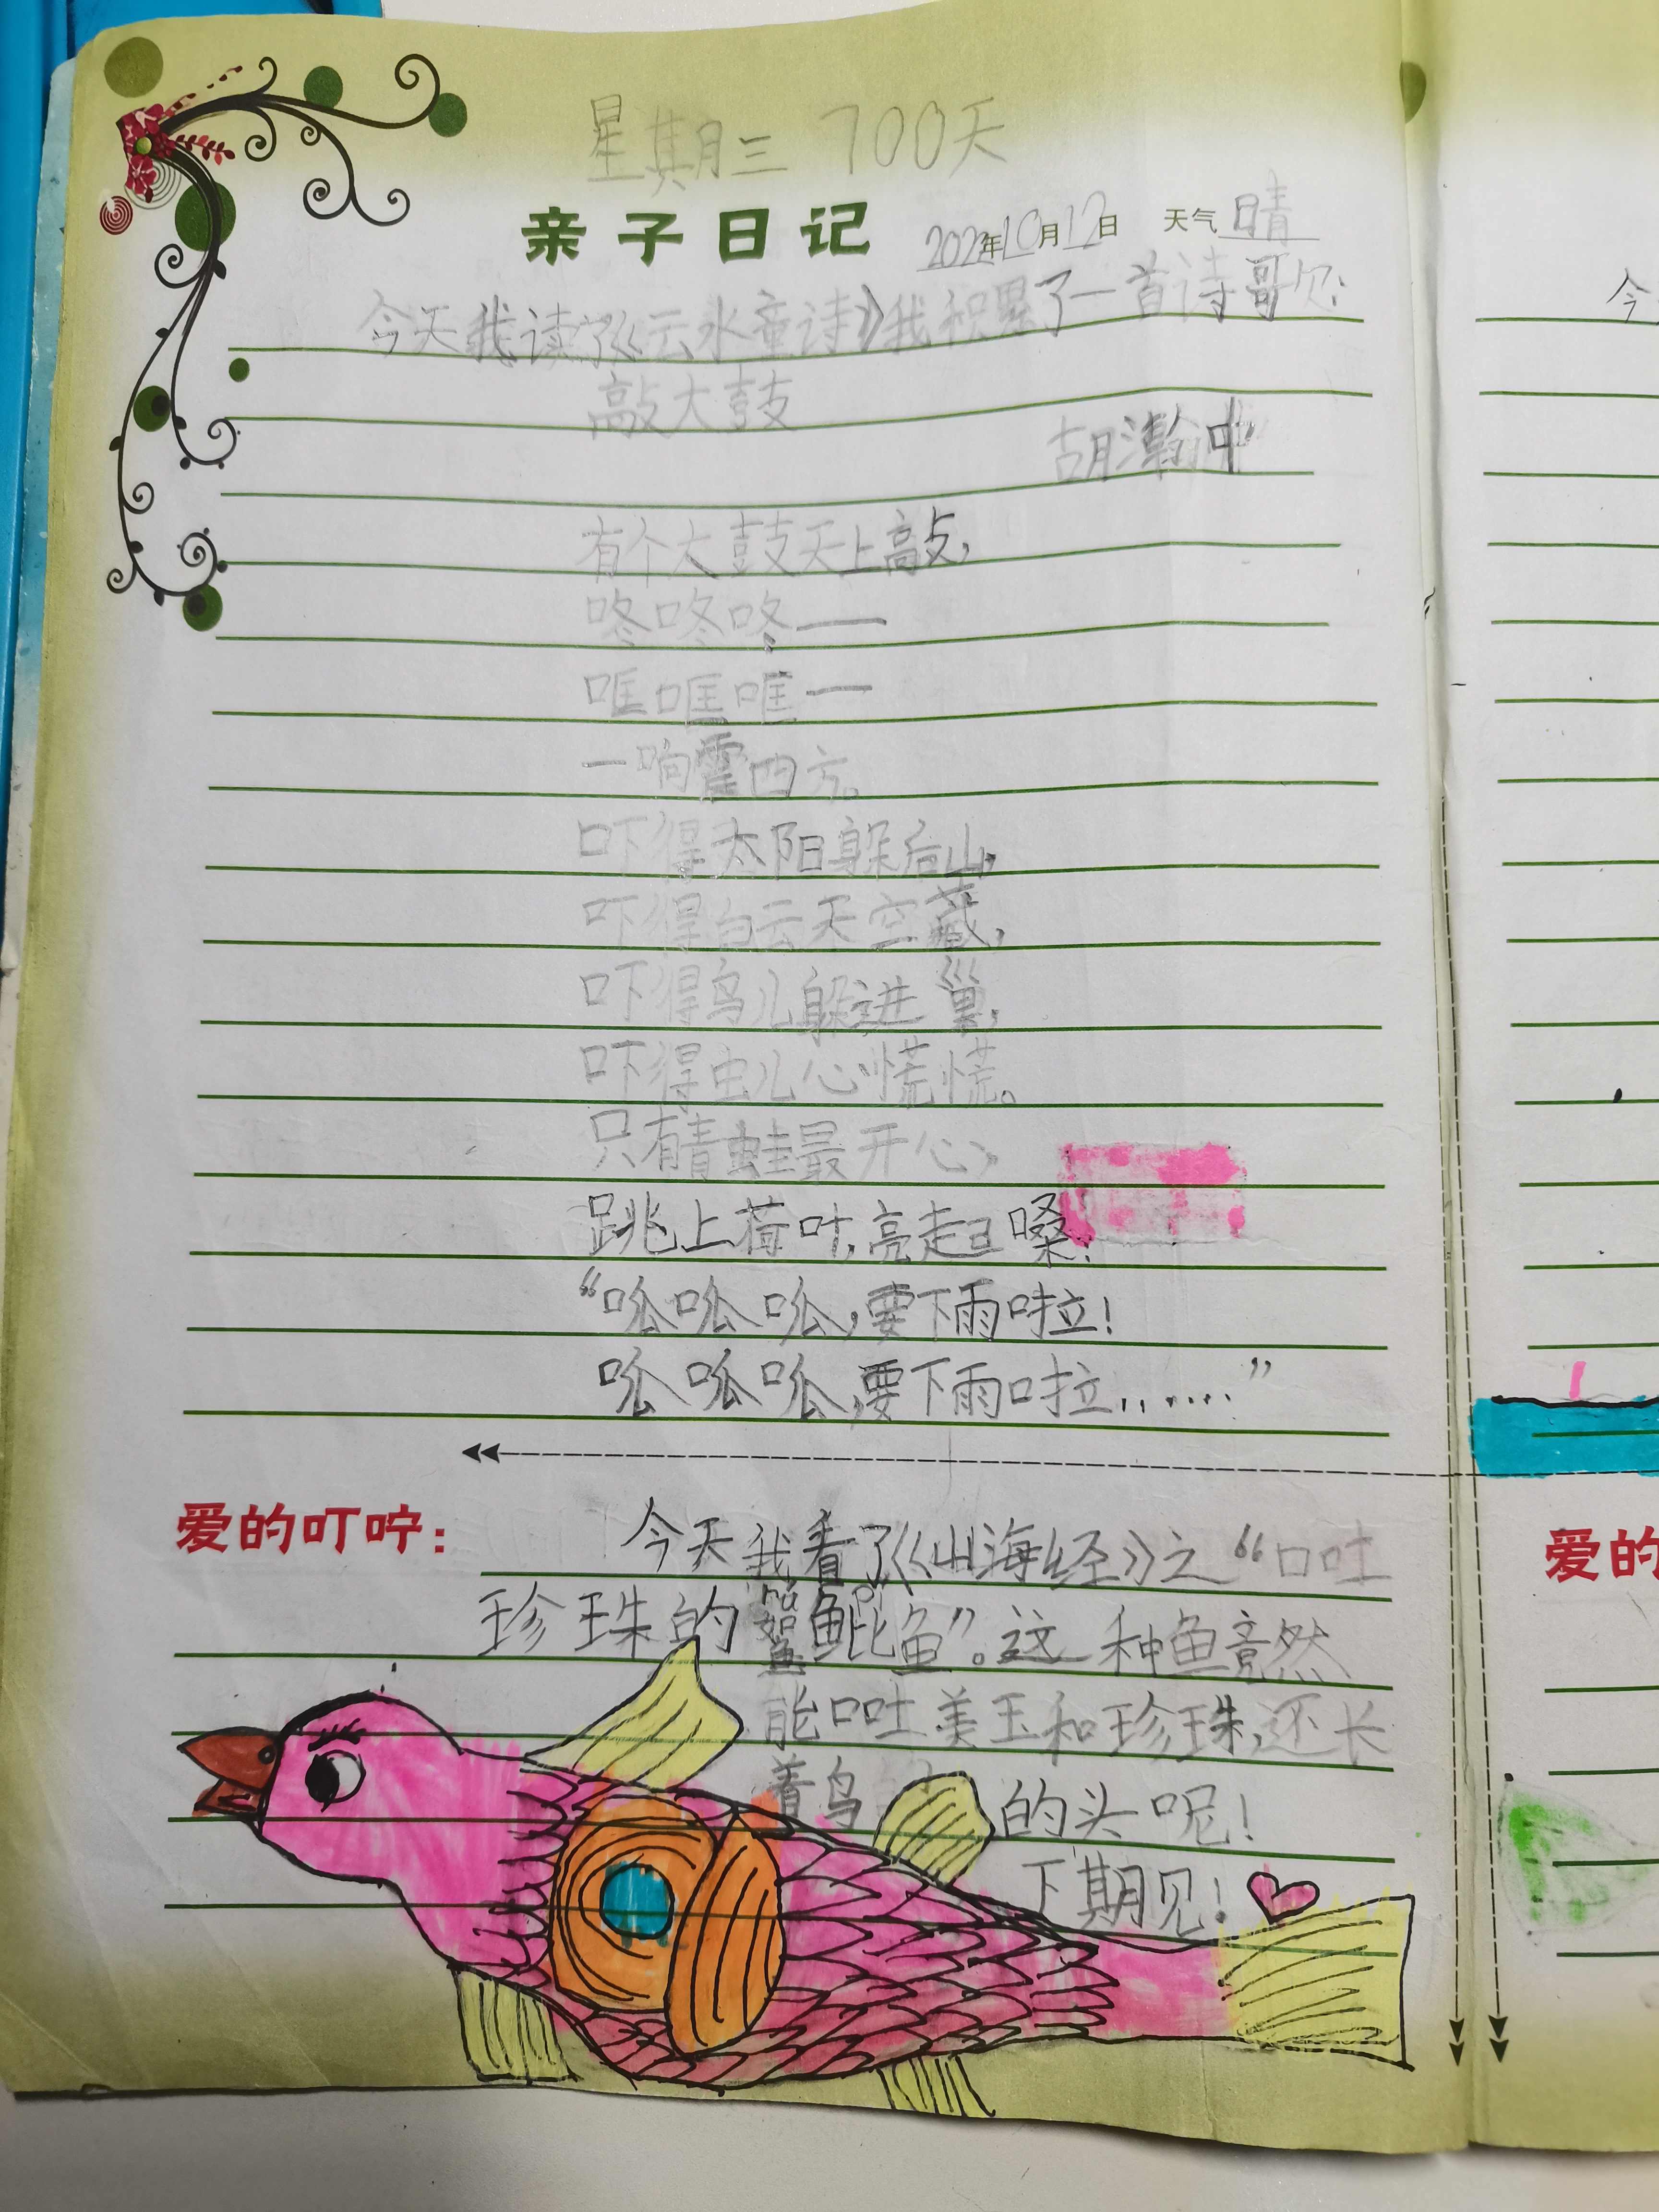 星期三 700天
亲子日记 2022年10月12日 天气 晴
今天我读了《云水童诗》我积累了一首诗哥欠:
敲大鼓
胡瀚中
有个大鼓天上敲,
咚咚咚——
哐哐哐——
一响震四方。
吓得太阳躲后山,
吓得白云天空藏,
吓得鸟儿躲进巢,
吓得虫儿心慌慌。
只有青蛙最开心,
跳上荷叶,亮起嗓:
“呱呱呱,要下雨啦!
呱呱呱,要下雨啦……”
爱的叮咛: 今天我看了《山海经》之“口吐
珍珠的 鮆魮鱼”。这一种鱼竟然
能口吐美玉和珍珠,还长
着鸟 的头呢!
下期见!
今
爱的